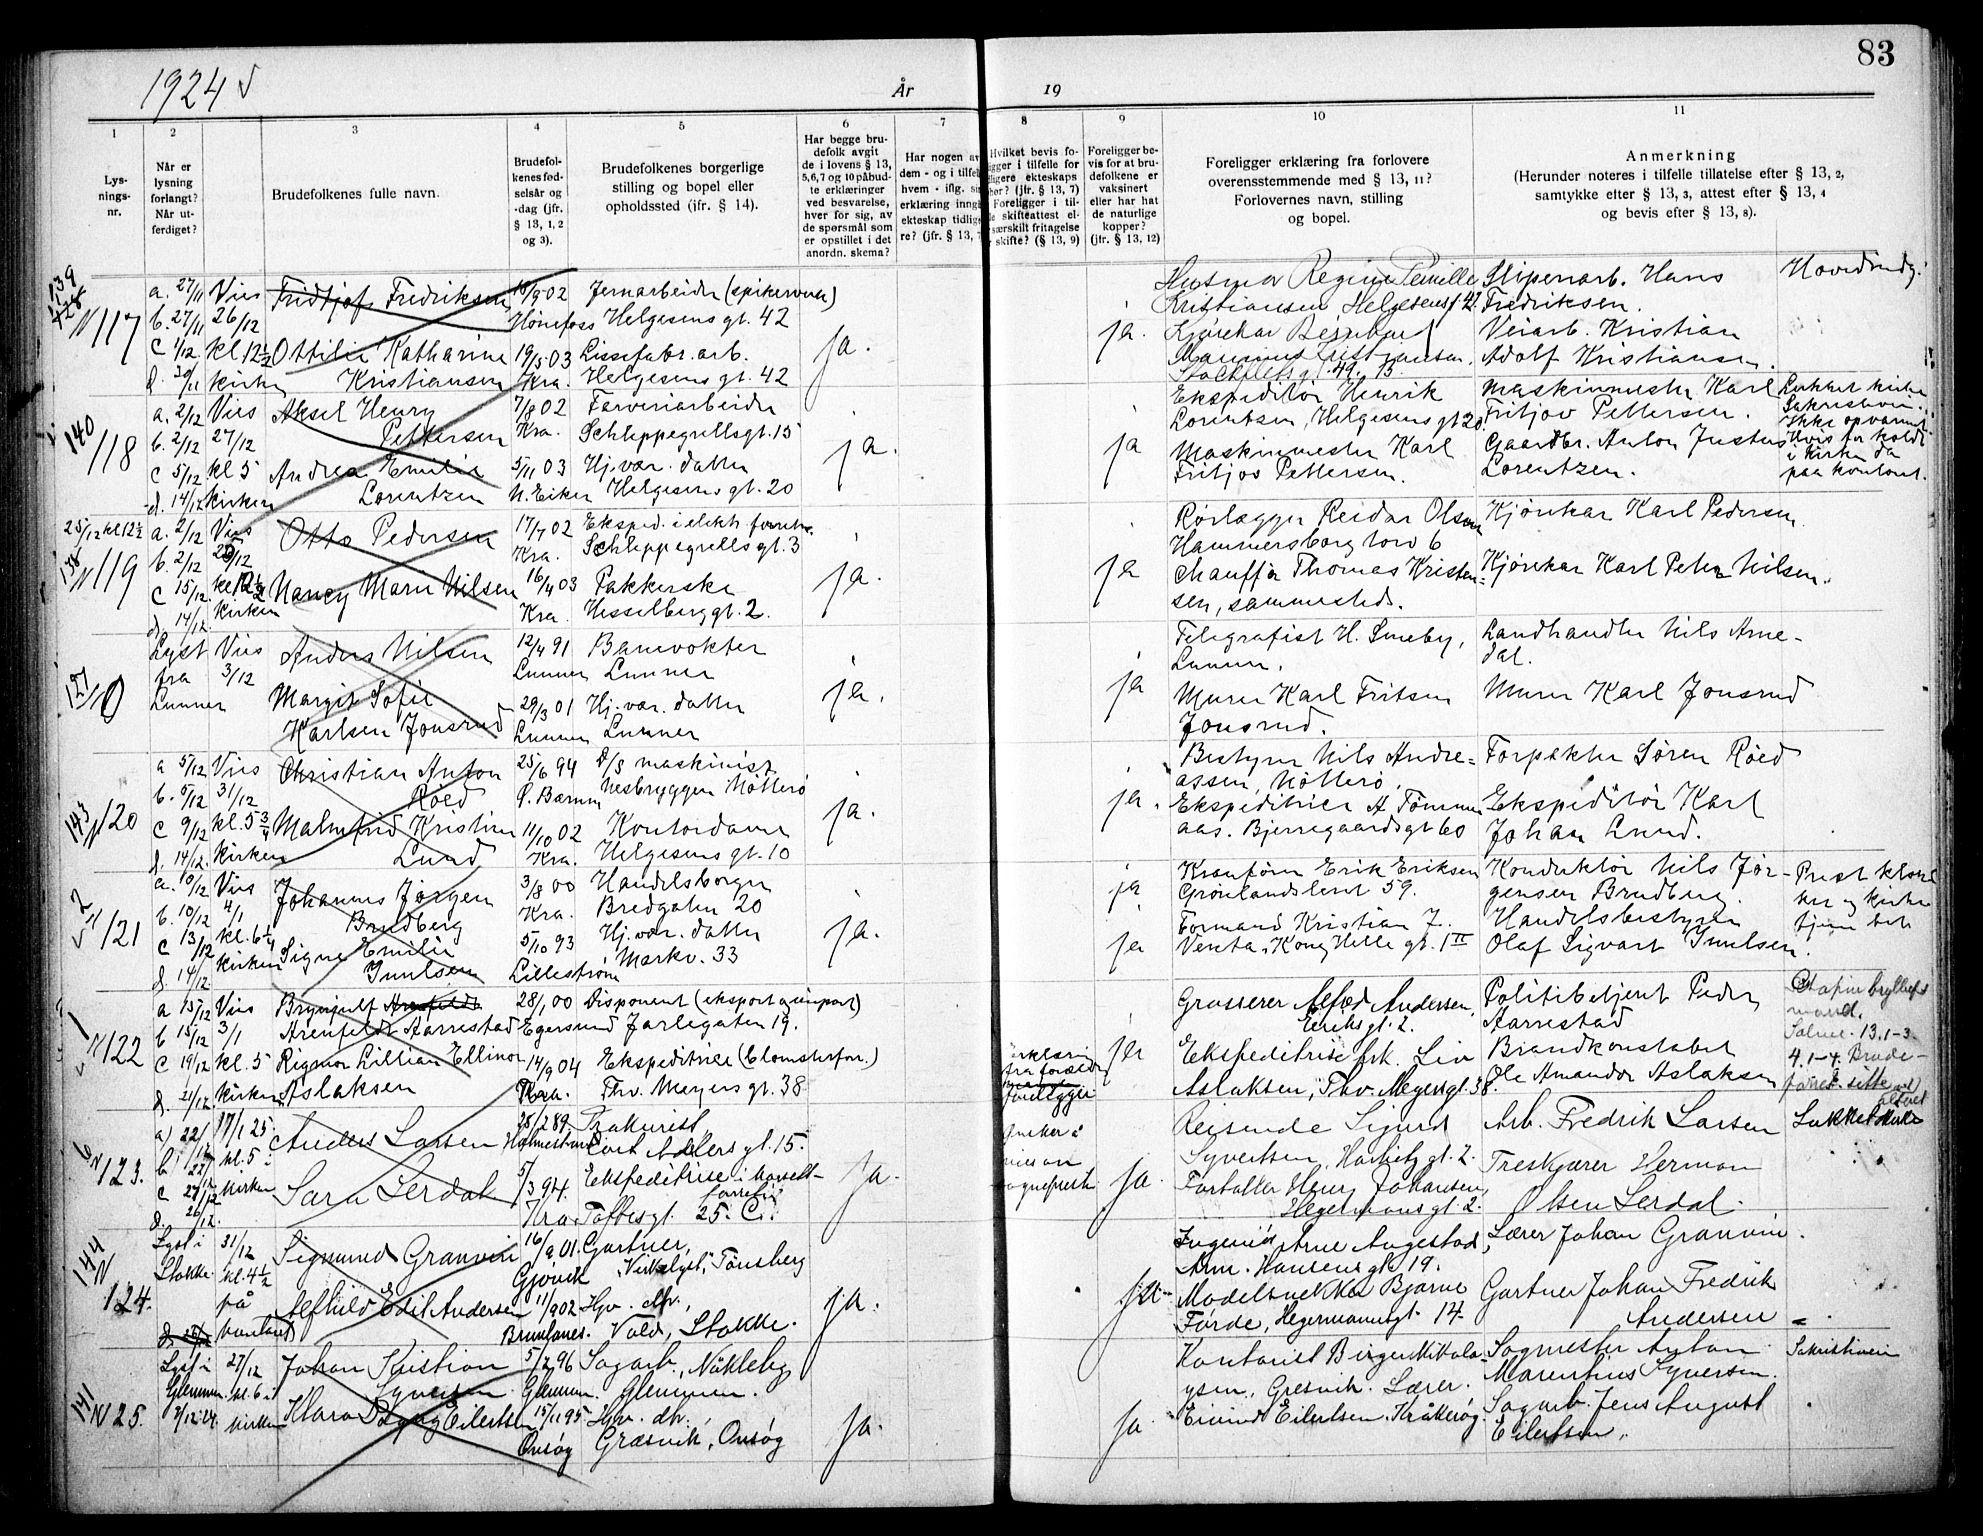 83
1924
År
19
1
2
3
4
5
6
7
8
9
10
11
Lys-
nings-
nr.
Når er
lysning
forlangt?
Når ut-
ferdiget?
Brudefolkenes fulle navn.
Brudefol-
kenes fød-
selsår og
-dag (jfr.
§ 13, 1, 2
og 3).
Brudefolkenes borgerlige
stilling og bopel eller
opholdssted (jfr. § 14).
Har begge bru-
defolk avgit
de i lovens § 13,
5, 6, 7 og 10 påbud-
te erklæringer
ved besvarelse,
hver for sig, av
de spørsmål som
er opstillet i det
anordn. skema?
Har nogen av
dem - og i tilfel
hvem - iflg. sin
erklæring inngå
ekteskap tidlige
re? (jfr. § 13, 7
Hvilket bevis fo-
ligger i tilfelle for
ligere ekteskaps
hør? (jfr. § 13, 7)
Foreligger i til-
le skifteattest el-
særskilt fritagelse
skifte? (§ 13, 9)
Foreligger be-
vis for at bru-
defolkene er
vaksinert
eller har hat
de naturlige
kopper?
(jfr. § 13, 12)
Foreligger erklæring fra forlovere
overensstemmende med § 13, 11?
Forlovernes navn, stilling
og bopel.
Anmerkning
(Herunder noteres i tilfelle tillatelse efter § 13, 2,
samtykke efter § 13, 3, attest efter § 13, 4
og bevis efter § 13, 8).
139
117
a. 27/11 Vies
b. 27/11 26/12
c 1/12 kl 12 1/2
d. 30/11 kirken
Fridtjof Fredriksen
Ottilie Katharine
Kristiansen
10/9 02
Hønefoss
19/5 03
Kra.
Jernarbeider (spikerverk)
Helgesens gt. 42
Lissefabr. arb.
Helgesens gt. 42
ja.
ja.
Hustru Regine Pernille
Kristiansen Helgesensgt 42.
Kjørekar Bernhard
Stockfletsgt. 49.
Slipenarb. Hans
Fredriksen.
Veiarb. Kristian
Adolf Kristiansen.
140
118
a. 2/12 Vies
b. 2/12 27/12
c 5/12 kl 5
d. 14/12 kirken
Aksel Henry
Pettersen
Andrea Emilie
Lorentzen
7/8 02
Kra.
5/11 03
N. Eiker
Farveriarbeider
Schleppegrellsgt. 15
Hj. vær. datter
Helgesens gt. 20
ja.
ja
Ekspeditør Henrik
Lorentsen, Helgesens gt 20.
Maskinmester Karl
Fritjof Pettersen.
Maskinmester Karl
Fritjov Pettersen.
Gaardbr. Anton Justus
Lorentzen.
Lukket kirke
Sakristiet.
Ikke opvarmet
Hvis for koldt
i kirken da
paa kontoret.
25/12 kl 12 1/2
138
119
a. 2/12 Vies
b. 2/12 25/12
c 15/12 kl 12 1/2
d. 14/12. kirken
Otto Pedersen
Nancy Marie Nilsen
17/7 02
Kra.
16/4 03
Kra.
Eksped. i elektr. forretn.
Schleppegrells gt. 3
Pakkerske
Hesselberg gt. 2.
ja.
ja
Rørlægger Reidar Olsen
Hammersborg torv 6
Chauffør Thomas Kristen-
sen, sammesteds.
Kjørekar Karl Pedersen
Kjørekar Karl Peter Nilsen.
127
0
Lyst Vies
fra 3/12
Lunner
Anders Nilsen
Margit Sofie
Karlsen Jonsrud
12/4 91
Lunner
29/3 01
Lunner
Banevokter
Lunner
Hj. vær. datter
Lunner
ja.
ja
Telegrafist H. Smeby,
Lunner.
Murer Karl Fritsen
Jonsrud.
Landhandler Nils Arne-
dal.
Murer Karl Jonsrud
143
120
a 5/12 Vies
b. 5/12 31/12
c 9/12 kl. 5 3/4
d. 14/12. kirken
Christian Anton
Roed
Malmfrid Kristine
Lund
25/6 94
Ø. Bærum
11/10 02
Kra.
D/S maskinist
Nesbryggen Nøtterø
Kontordame
Helgesens gt. 10
ja.
ja.
Bestyrer Nils Andre-
assen, Nøtterø,
Ekspeditrice A Tømmer
aas. Bjerregaardsgt 60
Forpakter Søren Røed
Ekspeditør Karl
Johan Lund.
2
121
a. 10/12 Vies
b. 10/12 4/1
c 13/12 kl. 6 1/4
d. 14/12 kirken
Johannes Jørgen
Brudberg
Signe Emilie
3/8 00
Kra.
5/10 93
Lillestrøm
Handelsborger
Bredgaten 20
Hj. vær. datter
Markv. 33
ja.
ja
ja
Kranfører Erik Eriksen
Grønlandsleret 59.
Formand Kristian J.
Venta. Kong Helle gt. 1 II
Konduktør Nils Jør-
gensen Brudberg.
Handelsbestyrer
Olaf Sigvart
1
122
a 15/12 Vies
b 15/12 3/1
c 19/12 kl. 5
d. 21/12. kirken
Brynjulf Arenfeldt
Arenfeldt Aarrestad
Rigmor Lillian Ellinor
Aslaksen
28/1 00
Egersund
14/9 04
Kra.
Disponent (eksport & import)
Jarlegaten 19.
Ekspeditrice (blomsterforr.)
Thv. Meyers gt. 38
foreligger
ja
Grosserer Alfred Andersen,
Eriks gt. 2.
Ekspeditrise frk. Liv
Aslaksen, Thv. Meyersgt. 38.
Politibetjent Peder
Aarrestad
Brandkonstabel
Ole Amandor Aslaksen
Salme. 13. 1-3
4. 1-4. Brude-
6
123.
a) 22/12 17/1 25.
b) 22/12 kl. 5
c 27/12 kirken
d. 26/12.
Anders Larsen
Sara Lerdal
28/2 89
Holmestrand
5/3 94.
Kra
Prokurist,
Cort Adelers gt. 15.
Ekspeditrise i
Toftesgt. 25. C.
Ja.
Ja.
Reisende Sigurd
Syvertsen, Harbitz gt. 2.
Fortolker Henry Johansen,
Hegermanns gt. 2.
Arb. Fredrik Larsen
Treskjærer Herman
Olsen Lerdal.
Lukket kirke
144
124.
Lyst i 31/12
Stokke. kl. 4 1/2
på
kontoret
Sigmund Granvin
Alfhild Edit Andersen
16/9 01.
Gjøvik
11/9 02
Brunlanes.
Gartner,
Tønsberg
Hjv. dtr.,
Vold, Stokke.
ja.
ja
Ingeniør Arne Augestad,
Arne. Hansens gt. 19.
Modelsnekker Bjarne
Førde, Hegermannsgt. 14
Lærer Johan Granvin.
Gartner Johan Fredrik
Andersen
141
125.
Lyst i 27/12
Glemmen. kl. 6
kirken
Johan Kristian
Syversen
Klara Dagny Eilertsen
5/7 96
Glemmen.
15/11 95
Onsøy
Sagarb., Nøkleby
Glemmen.
Hjv. dtr.
Græsvik, Onsøy
Ja.
Ja.
Kontorist Birger Nikola-
ysen, Gresvik. Lærer.
Eivind Eilertsen, Kråkerøy.
Sagmester Anton
Marentius Syversen.
Sagarb. Jens August
Eilertsen.
Sakristien